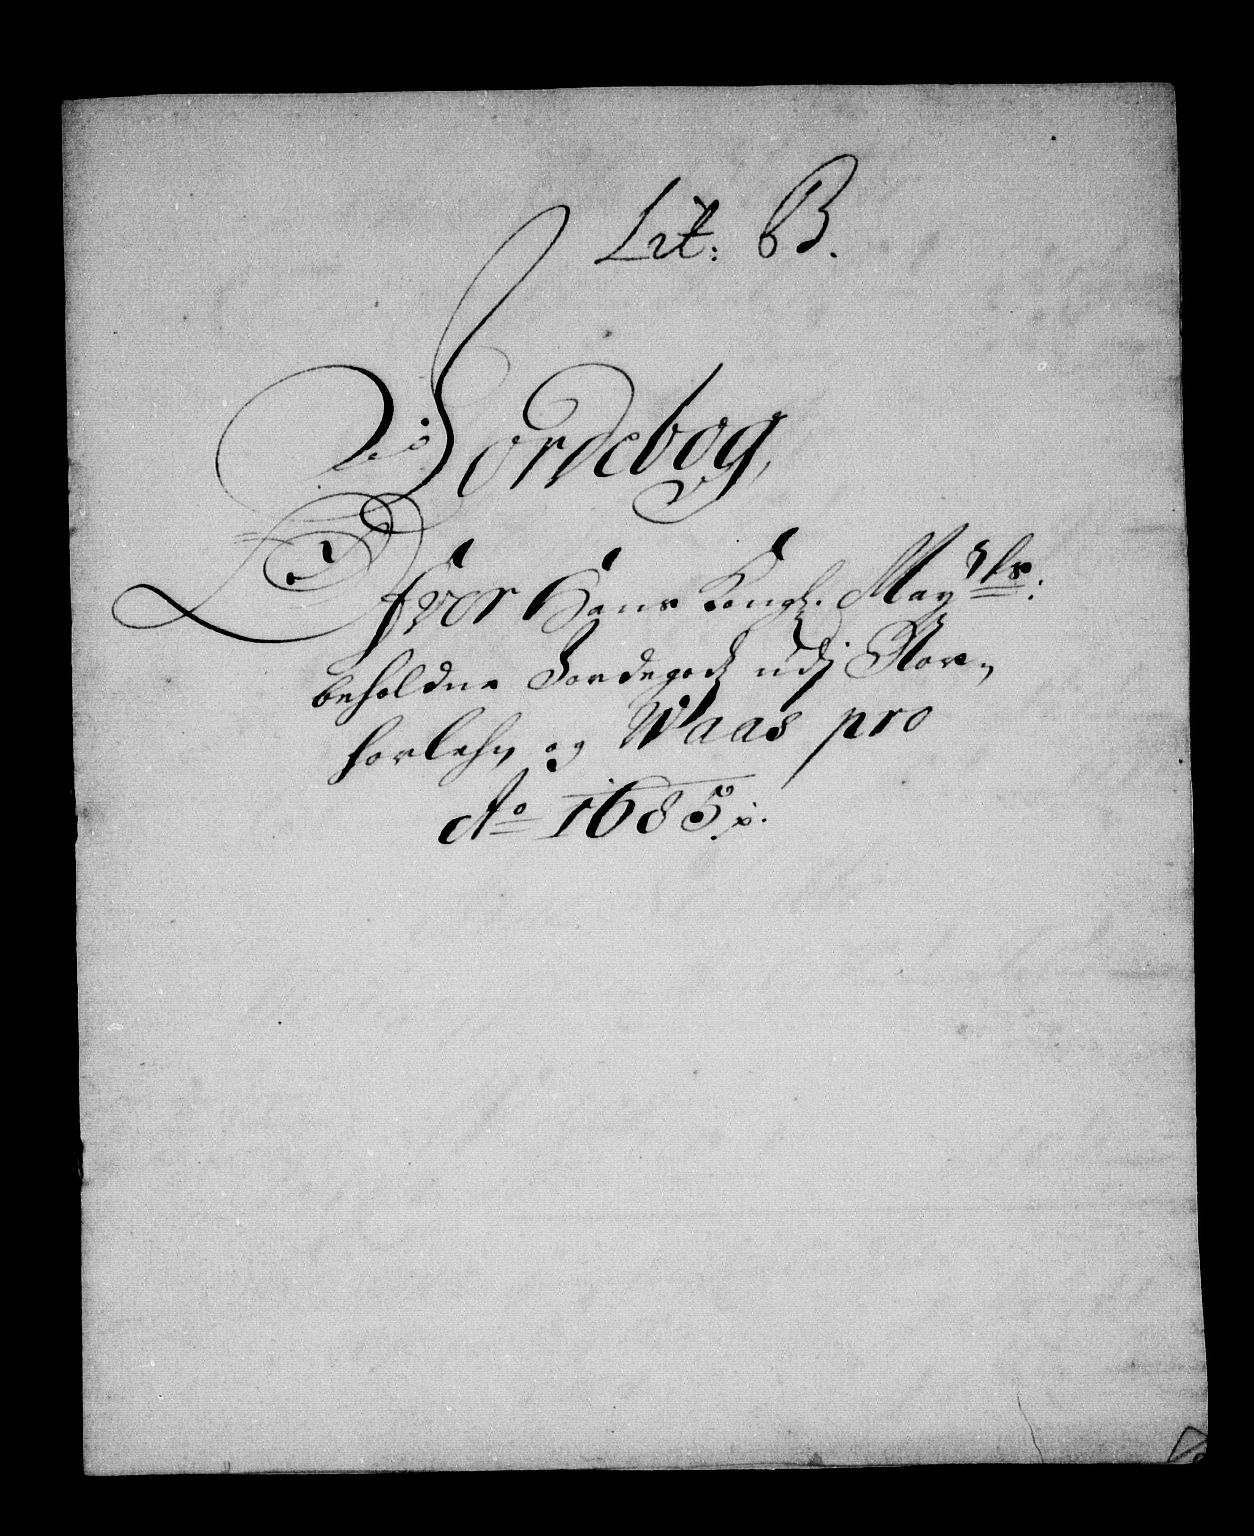 Lit: B.
Jordebog,
Ofver Hans Kongl. Mayts:
beholdne Jordegods udj Nor-
horlehn og Waas pro
Ao 1685.